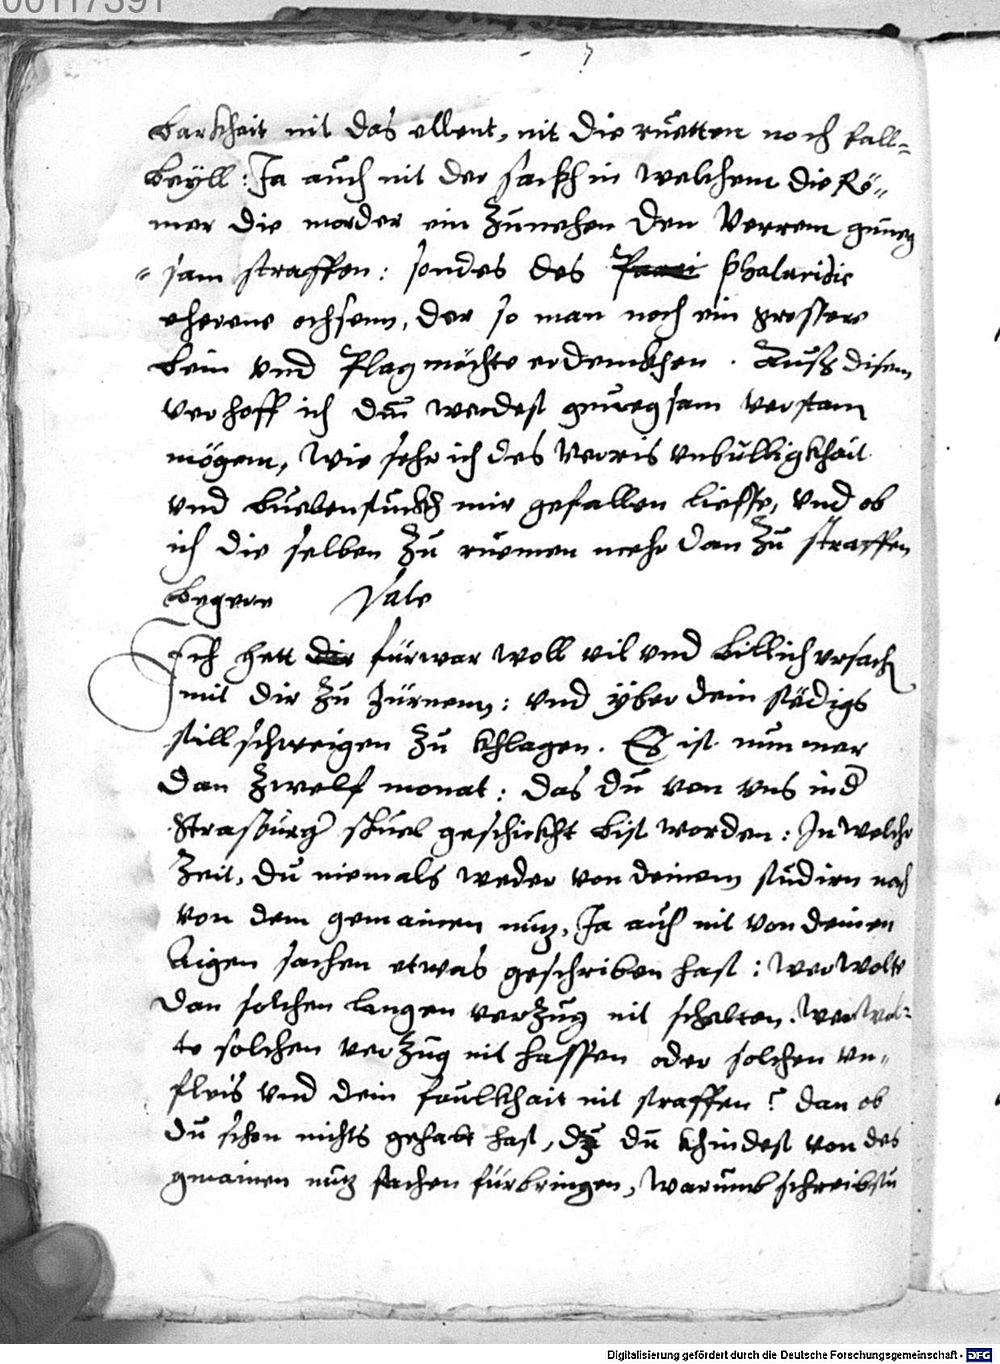 00117391
7
barkhait nit das ellent, nit die ruetten noch fall-
beyll: Ja auch nit der sackh in welchem die Rö-
mer die morder ein Zunehen den Verrem gnueg
sam straffen: sondes des Phalaridis
eherene ochsenn, der so man noch ein grossere
bein vnd Plag möchte erdenckhen. Auß disem
verhoff ich du werdest gnuegsam verstan
mögenn, wie sehr ich des Verris vnbulligkhait
vnd buebenstuckh mir gefallen liesse, vnd ob
ich die selben Zu ruemen mehr dan Zu straffen
begere Vale
Ich hett fürwar woll vil vnd billich vrsach
mit dir Zu Zürnenn: vnd yber dein städigs
stillschweigen Zu khlagen. Es ist nun mer
dan Zwelf monat: das du von vns ind
Strasburger shuel geschickht bist worden: In welcher
Zeit, du niemals weder von deinem studirn noch
von dem gemainen nutz, Ja auch nit von deinen
aigen sachen etwas geschriben hast: wer wolte
dan solchen langen verzug nit schelten. wer wol-
te solchen verZug nit hassen oder solchen vn-
fleis vnd dein faulkhait nit straffen? dan ob
du schon nichts gehabt hast, dz du khindest von des
gmainen nutz sachen fürbringen, warumb schreibstu
Digitalisierung gefördert durch die Deutsche Forschungsgemeinschaft - DFG